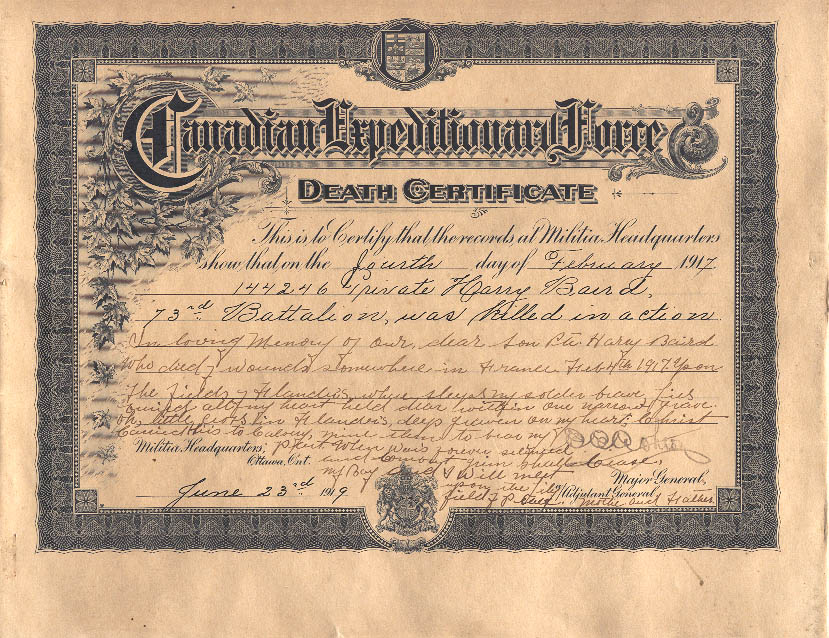 Canadian Expeditionary Force
DEATH CERTIFICATE
This is to Certify that the records at Militia Headquarters
show that on the fourth day of February 1917.
144246 Private Harry Baird,
73rd Battalion, was killed in action
In loving Memory of our dear Son Pte. Harry Baird
who died of wounds somewhere in France Feb 4th 1917
The fields of Flanders, where sleeps my soldier brave lies
all my heart held dear within one narrow grave.
cross in Flanders, deep graven on my heart, Christ
His to mine to bear my
Militia Headquarters, part When wars forever
Ottawa, Ont. and
my Boy and I Will meet Major General,
June 23rd 1919. field of Adjutant General Mother and Father